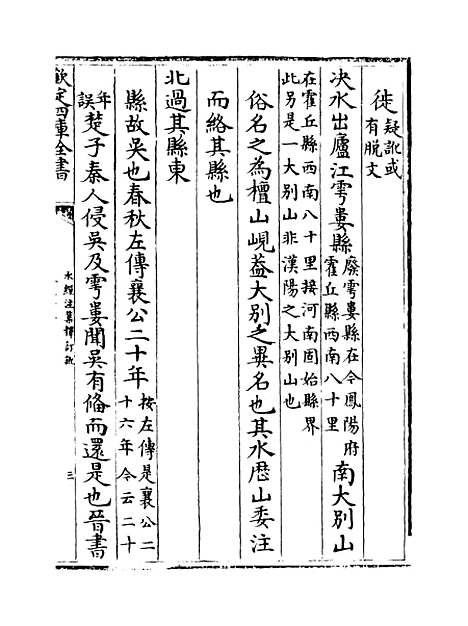 徙疑訛或
有脫文
決水出廬江雩婁縣廢雩婁縣在今鳳陽府
霍丘縣西南八十里南大別山
在霍丘縣西南八十里接河南固始縣界
此另是一大別山非漢陽之大別山也
俗名之為檀山峴葢大別之異名也其水歴山委注
而絡其縣也
北過其縣東
縣故吳也春秋左傳襄公二十年按左傳是襄公二
十六年今云二十
年
誤楚子秦人侵吳及雩婁聞吳有偹而還是也晉書
欽定四庫全書
水經注集釋訂訛
三